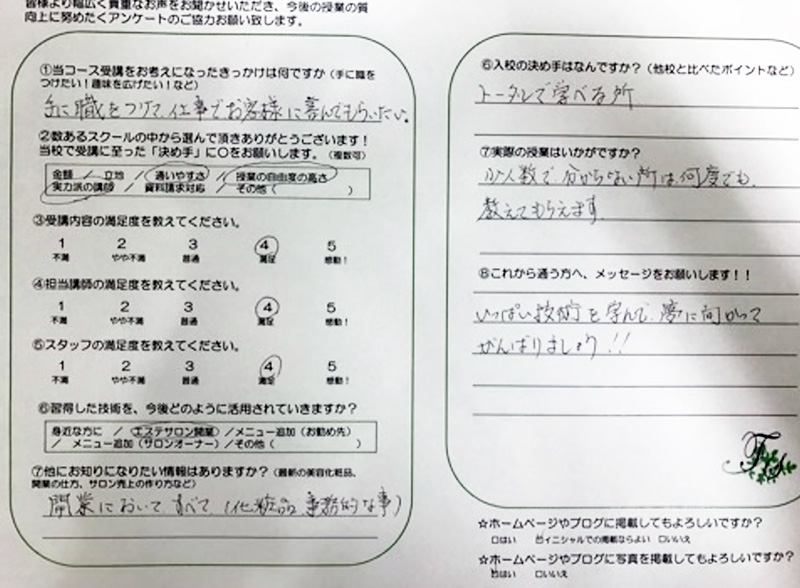 皆様より幅広く貴重なお声をお聞かせいただき、今後の授業の質
向上に努めたくアンケートのご協力お願い致します。
①当コース受講をお考えになったきっかけは何ですか（手に職を
つけたい！趣味を広げたい！など）
手に職をつけて、仕事でお客様に喜んでもらいたい。
②数あるスクールの中から選んで頂きありがとうございます！
当校で受講に至った「決め手」に〇をお願いします。（複数可）
金額 / 立地 / 通いやすさ / 授業の自由度の高さ
実力派の講師 / 資料請求対応 / その他（ ）
③受講内容の満足度を教えてください。
1 2 3 4 5
不満 やや不満 普通 満足 感動！
④担当講師の満足度を教えてください。
1 2 3 4 5
不満 やや不満 普通 満足 感動！
⑤スタッフの満足度を教えてください。
1 2 3 4 5
不満 やや不満 普通 満足 感動！
⑥習得した技術を、今後どのように活用されていきますか？
身近な方に / エステサロン開業 / メニュー追加（お勤め先）
/ メニュー追加（サロンオーナー）/ その他（ ）
⑦他にお知りになりたい情報はありますか？（最新の美容化粧品、
開業の仕方、サロン売上の作り方など）
開業において、すべて、（化粧品、事務的な事）
⑥入校の決め手はなんですか？（他校と比べたポイントなど）
トータルで学べる所
⑦実際の授業はいかがですか？
少人数で、分からない所は、何度でも、
教えてもらえます。
⑧これから通う方へ、メッセージをお願いします！！
いっぱい技術を学んで、夢に向かって
がんばりましょう!!
☆ホームページやブログに掲載してもよろしいですか？
□はい □イニシャルでの掲載ならよい □いいえ
☆ホームページやブログに写真を掲載してもよろしいですか？
□はい □いいえ